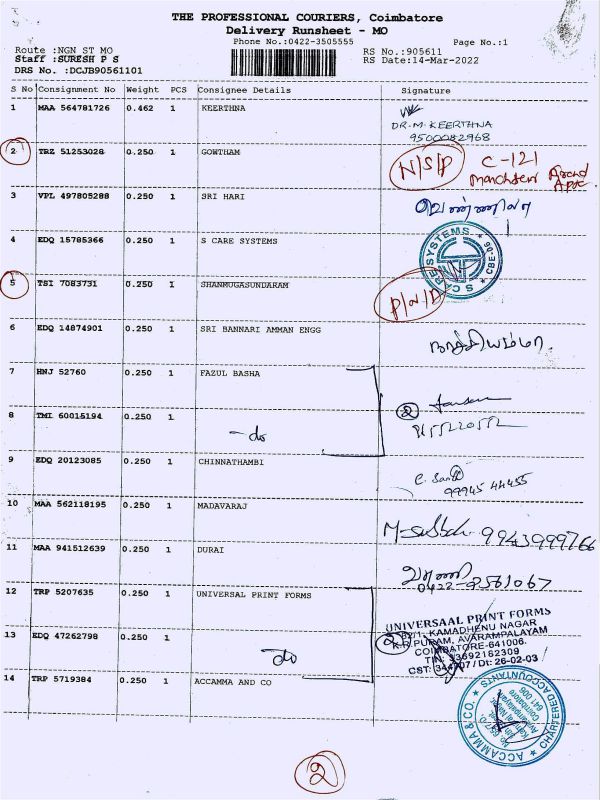 2
THE PROFESSIONAL COURIERS, Coimbatore
Delivery Runsheet - MO
Phone No.:0422-3505555 Page No.:1
Route :NGN ST MO RS No.:905611
Staff :SURESH P S RS Date:14-Mar-2022
DRS No. :DCJB90561101
S No Consignment No Weight PCS Consignee Details Signature
1 MAA 564781726 0.462 1 KEERTHNA
DR.M.KEERTHNA
9500082968
2 TRZ 51253028 0.250 1 GOWTHAM N/S/P C-121
Manchester Apts.
3 VPL 497805288 0.250 1 SRI HARI
4 EDQ 15785366 0.250 1 S CARE SYSTEMS
S CARE SYSTEMS CBE-06
5 TSI 7083731 0.250 1 SHANMUGASUNDARAM P/N/D
6 EDQ 14874901 0.250 1 SRI BANNARI AMMAN ENGG
7 HNJ 52760 0.250 1 FAZUL BASHA
2
8 TML 60015194 0.250 1 -do
9 EDQ 20123085 0.250 1 CHINNATHAMBI
99945 44455
10 MAA 562118195 0.250 1 MADAVARAJ
9943999766
11 MAA 941512639 0.250 1 DURAI
12 TRP 5207635 0.250 1 UNIVERSAL PRINT FORMS
UNIVERSAAL PRINT FORMS
82/1, KAMADHENU NAGAR
K.R.PURAM, AVARAMPALAYAM
COIMBATORE-641006.
13 EDQ 47262798 0.250 1 do
2
14 TRP 5719384 0.250 1 ACCAMMA AND CO
ACCAMMA & CO. CHARTERED ACCOUNTANTS
2